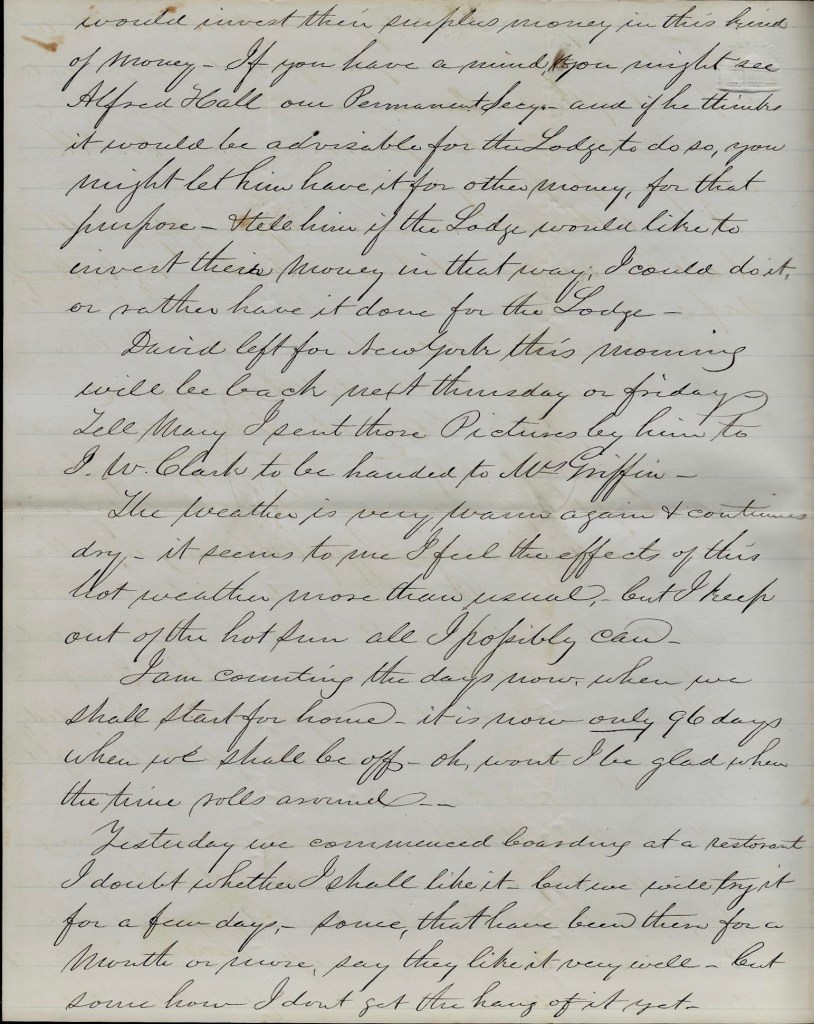 would invest their surplus money in this kind
of money - If you have a mind, to you might see
Alfred Hall our Permanent Secy - and if he thinks
it would be advisable for the Lodge to do so, you
might let him have it for other money, for that
purpose - & tell him if the Lodge would like to
invest their money in that way, I could do it,
or rather have it done for the Lodge -
David left for New York this morning
will be back next thursday or friday
Tell Mary I sent those Pictures by him to
I. W. Clark to be handed to Mrs Griffin -
The weather is very warm again & continues
dry - it seems to me I feel the effects of this
hot weather more than usual, - but I keep
out of the hot sun all I possibly can -
I am counting the days now, when we
shall start for home - it is now only 96 days
when we shall be off - oh, wont I be glad when
the time rolls around - -
Yesterday we commenced boarding at a restorant
I doubt whether I shall like it - but we will try it
for a few days, - some, that have been there for a
month or more, say they like it very well - but
some how I dont get the hang of it yet -